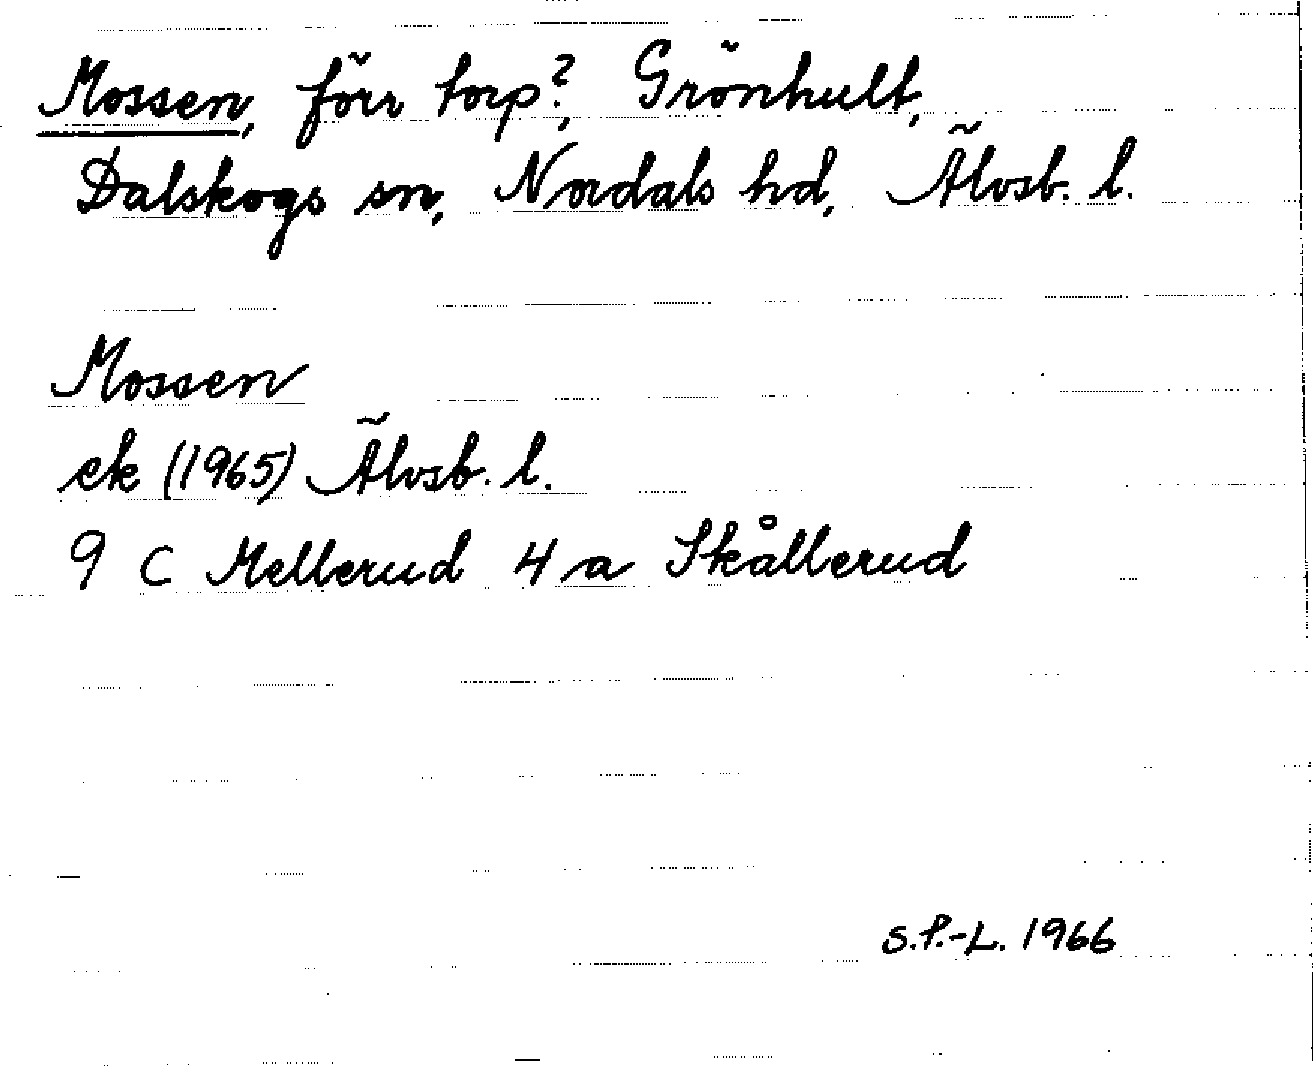 Mossen, förr torp?, Grönhult,
Dalskogs sn, Nordals hd, Älvsb. l.
Mossen
ek (1965) Älvsb. l.
9 C Mellerud 4 a Skållerud
S.P.-L. 1966